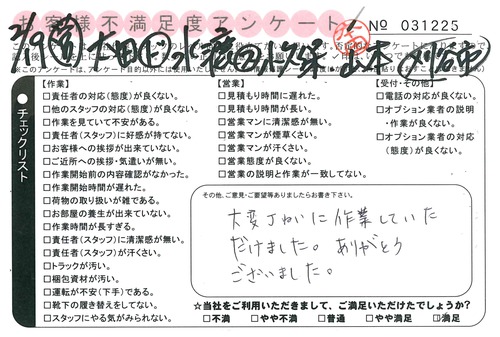 お客様不満足度アンケート
№ 031225
※このアンケートは、アンケート目的以外には使用いたし
チェックリスト
【作業】
□責任者の対応(態度)が良くない。
□他のスタッフの対応(態度)が良くない。
□作業を見ていて不安がある。
□責任者(スタッフ)に好感が持てない。
□お客様への挨拶が出来ていない。
□ご近所への挨拶・気遣いが無い。
□作業開始前の内容確認がなかった。
□作業開始時間が遅れた。
□荷物の取り扱いが雑である。
□お部屋の養生が出来ていない。
□作業時間が長すぎる。
□責任者(スタッフ)に清潔感が無い。
□責任者(スタッフ)が汗くさい。
□トラックが汚い。
□梱包資材が汚い。
□運転が不安(下手)である。
□靴下の履き替えをしてない。
□スタッフにやる気がみられない。
【営業】
□見積もり時間に遅れた。
□見積もり時間が長い。
□営業マンに清潔感が無い。
□営業マンが煙草くさい。
□営業マンが汗くさい。
□営業態度が良くない。
□営業の説明と作業が一致してない。
【受付・その他】
□電話の対応が良くない。
□オプション業者の説明
・作業が良くない。
□オプション業者の対応
(態度)が良くない。
その他、ご意見・ご要望等ありましたらお書き下さい。
大変丁ねいに作業していた
だけました。ありがとう
ございました。
☆当社をご利用いただきまして、ご満足いただけたでしょうか?
□不満 □やや不満 □普通 □やや満足 □満足